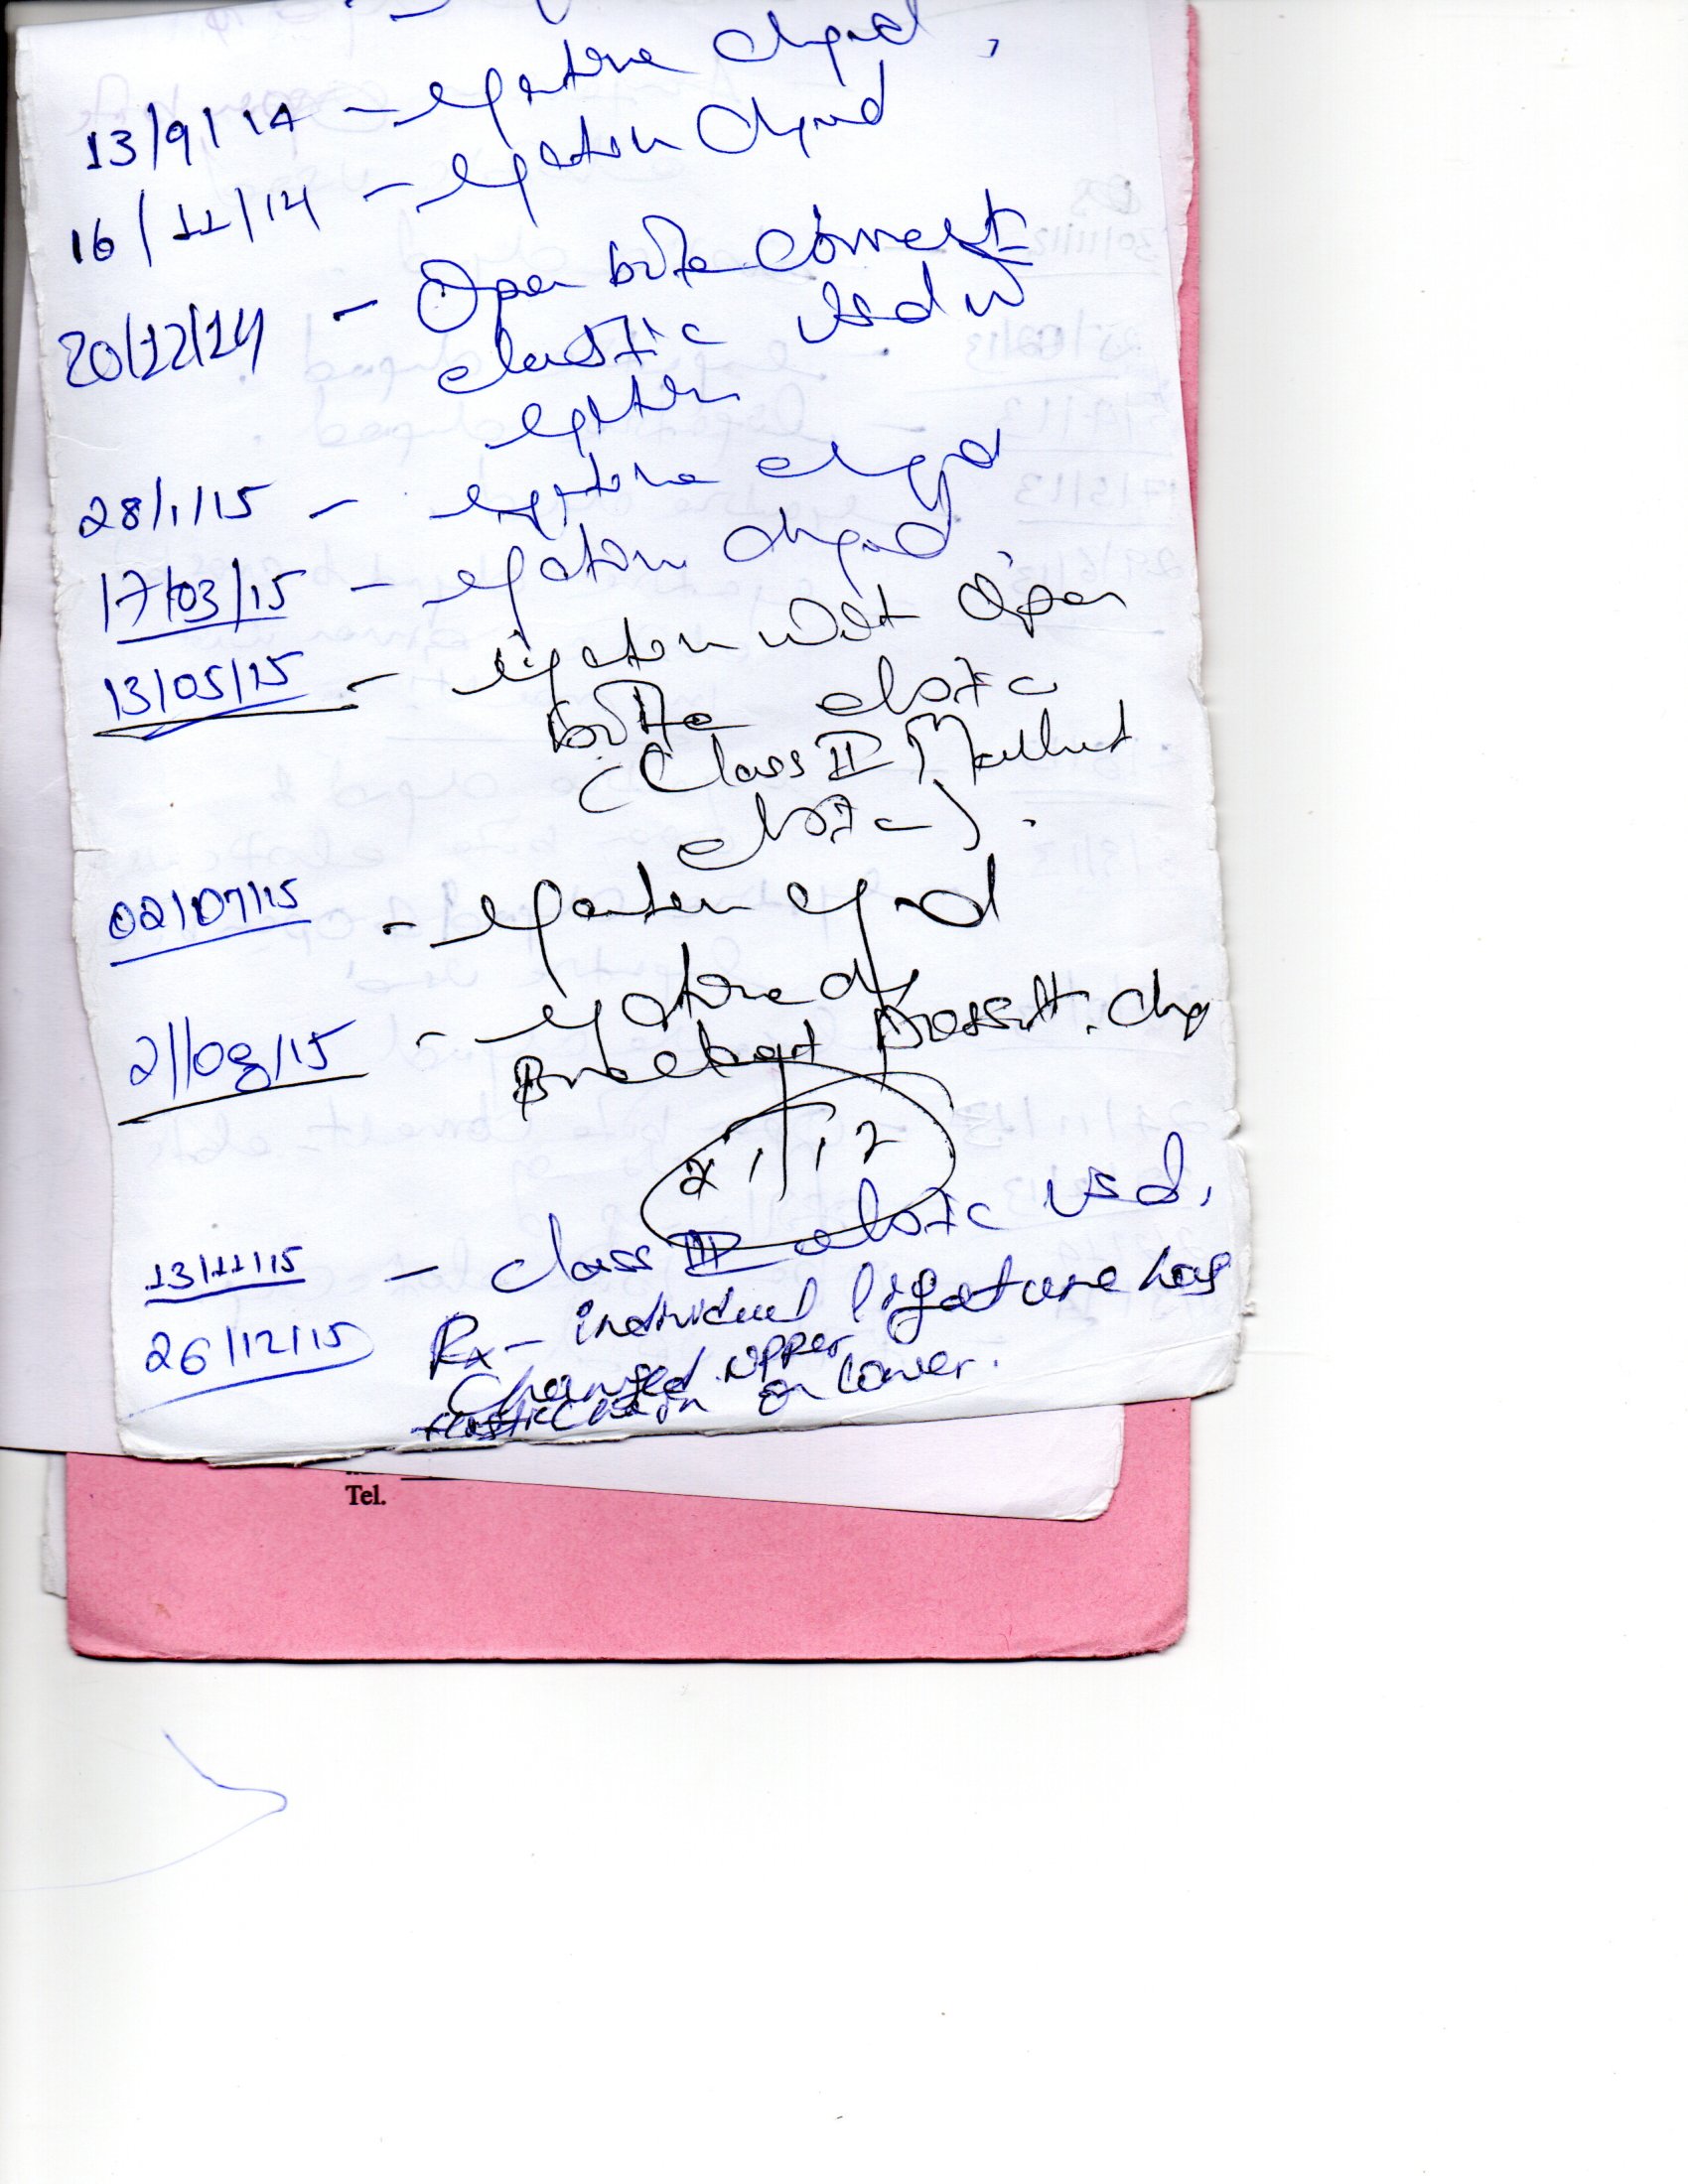 13/9/14 - ligature chgd,
16/11/14 - ligature chgd
20/12/14 - Open bite correct
elastic used w
ligature
28/1/15 - ligature chgd
17/03/15 - ligature chgd.
13/05/15 - ligature with open
bite elastic
(Class II
elastic).
02/07/15 - ligature chgd
21/08/15 - ligature chg
Bracket
2 1 | 1 2
13/11/15 - class III elastic used.
26/12/15 Rx - individual ligature has
Changed. upper
elastic chain on lower.
Tel.